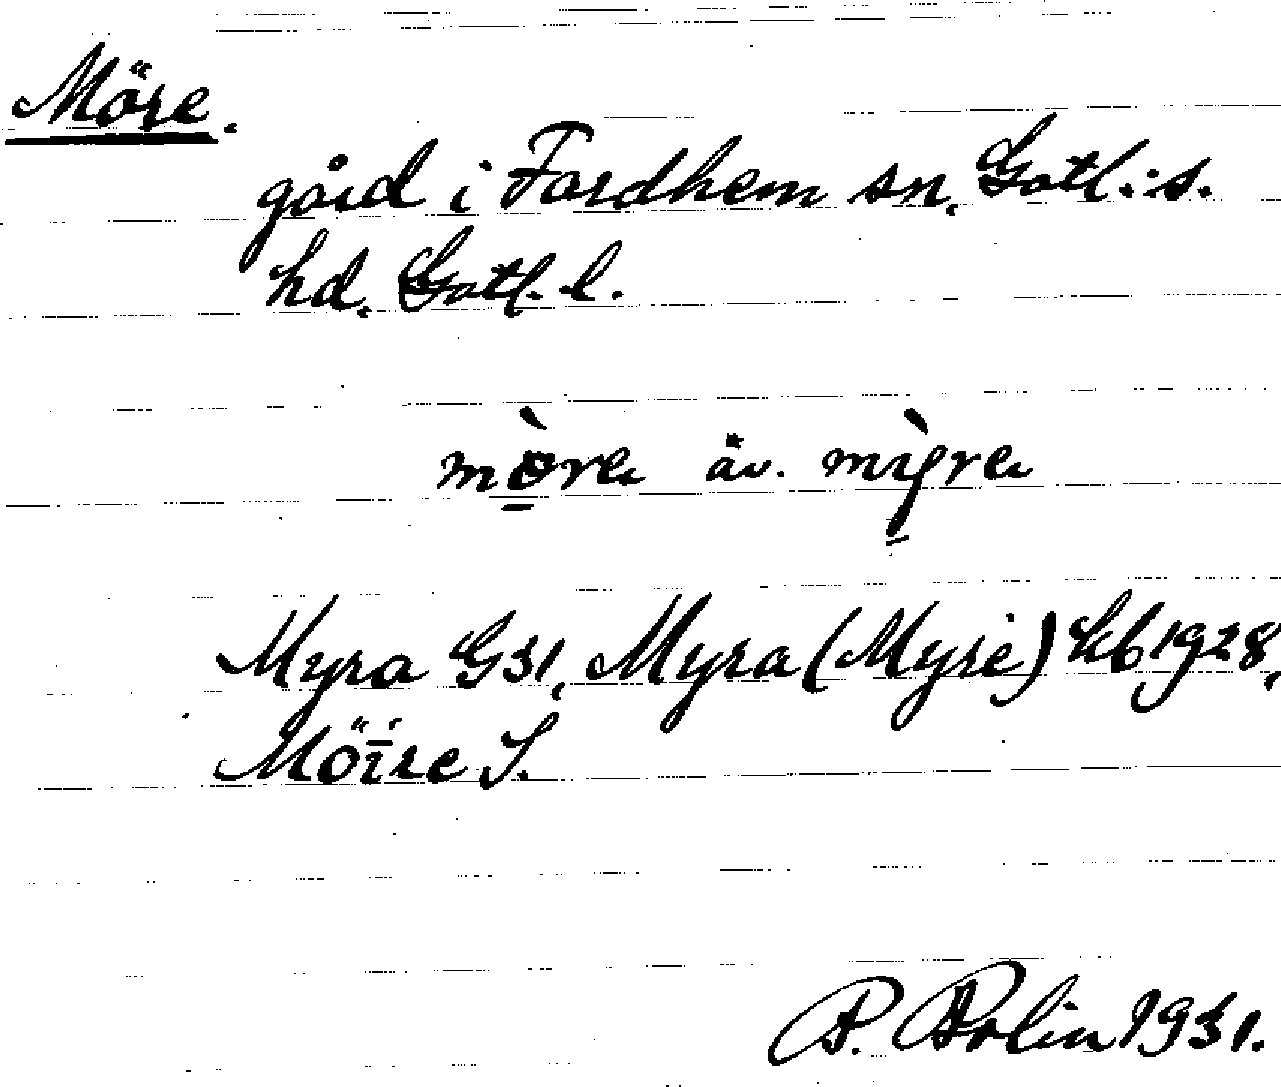 Möre.
gård i Fardhem sn, Gotl.:s.
hd, Gotl. l.
mòre äv. mỳre
Myra G31, Myra (Myre) kb 1928,
Möire S.
P. Arlin 1931.